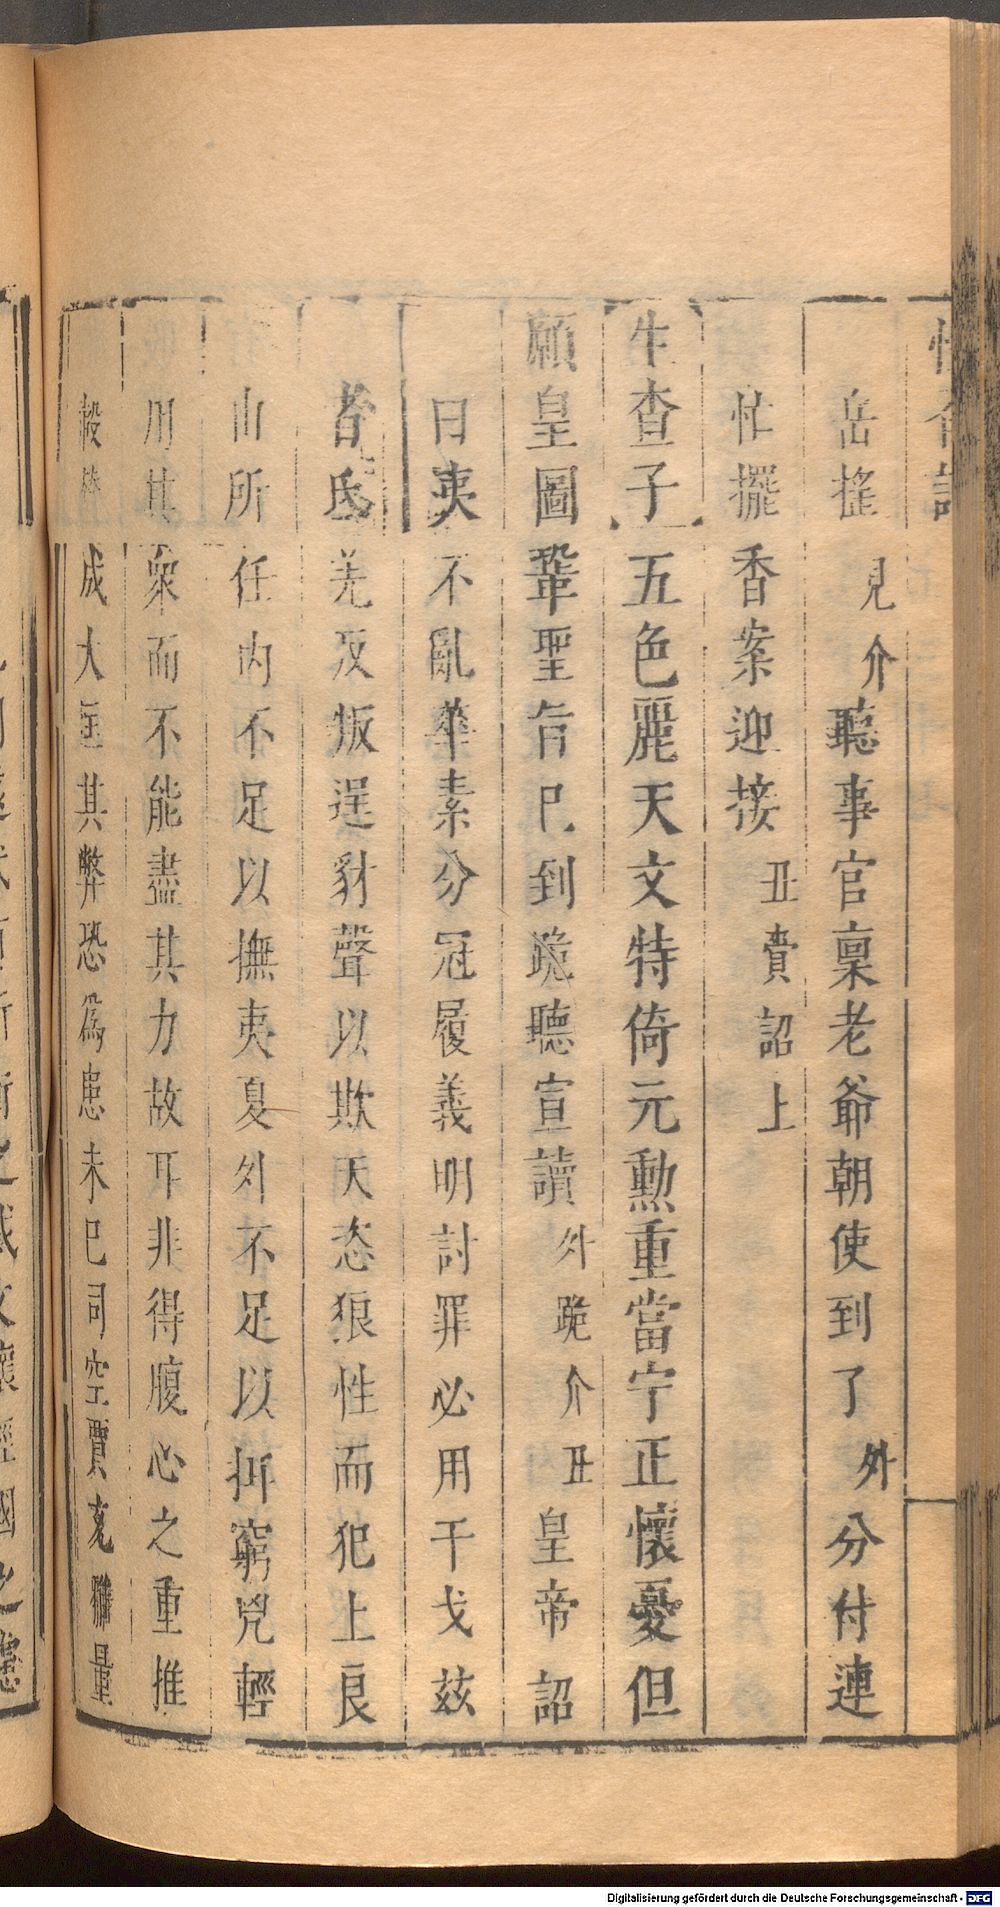 岳搖見介聽事官稟老爺朝使到了外分付連
忙擺香案迎接丑賫詔上
生查子五色麗天文特倚元勲重當宁正懷憂但
願皇圖鞏聖旨巳到跪聽宣讀外跪介丑皇帝詔
曰夷不亂華素分冠履義明討罪必用干戈玆
者氐羌反叛逞豺聲以欺天恣狼性而犯上良
由所任内不足以撫夷夏外不足以抑窮兇輕
用其衆而不能盡其力故耳非得腹心之重推
轂 成大 其弊恐爲患未已司空賈充雅量
Digitalisierung gefördert durch die Deutsche Forschungsgemeinschaft - DFG